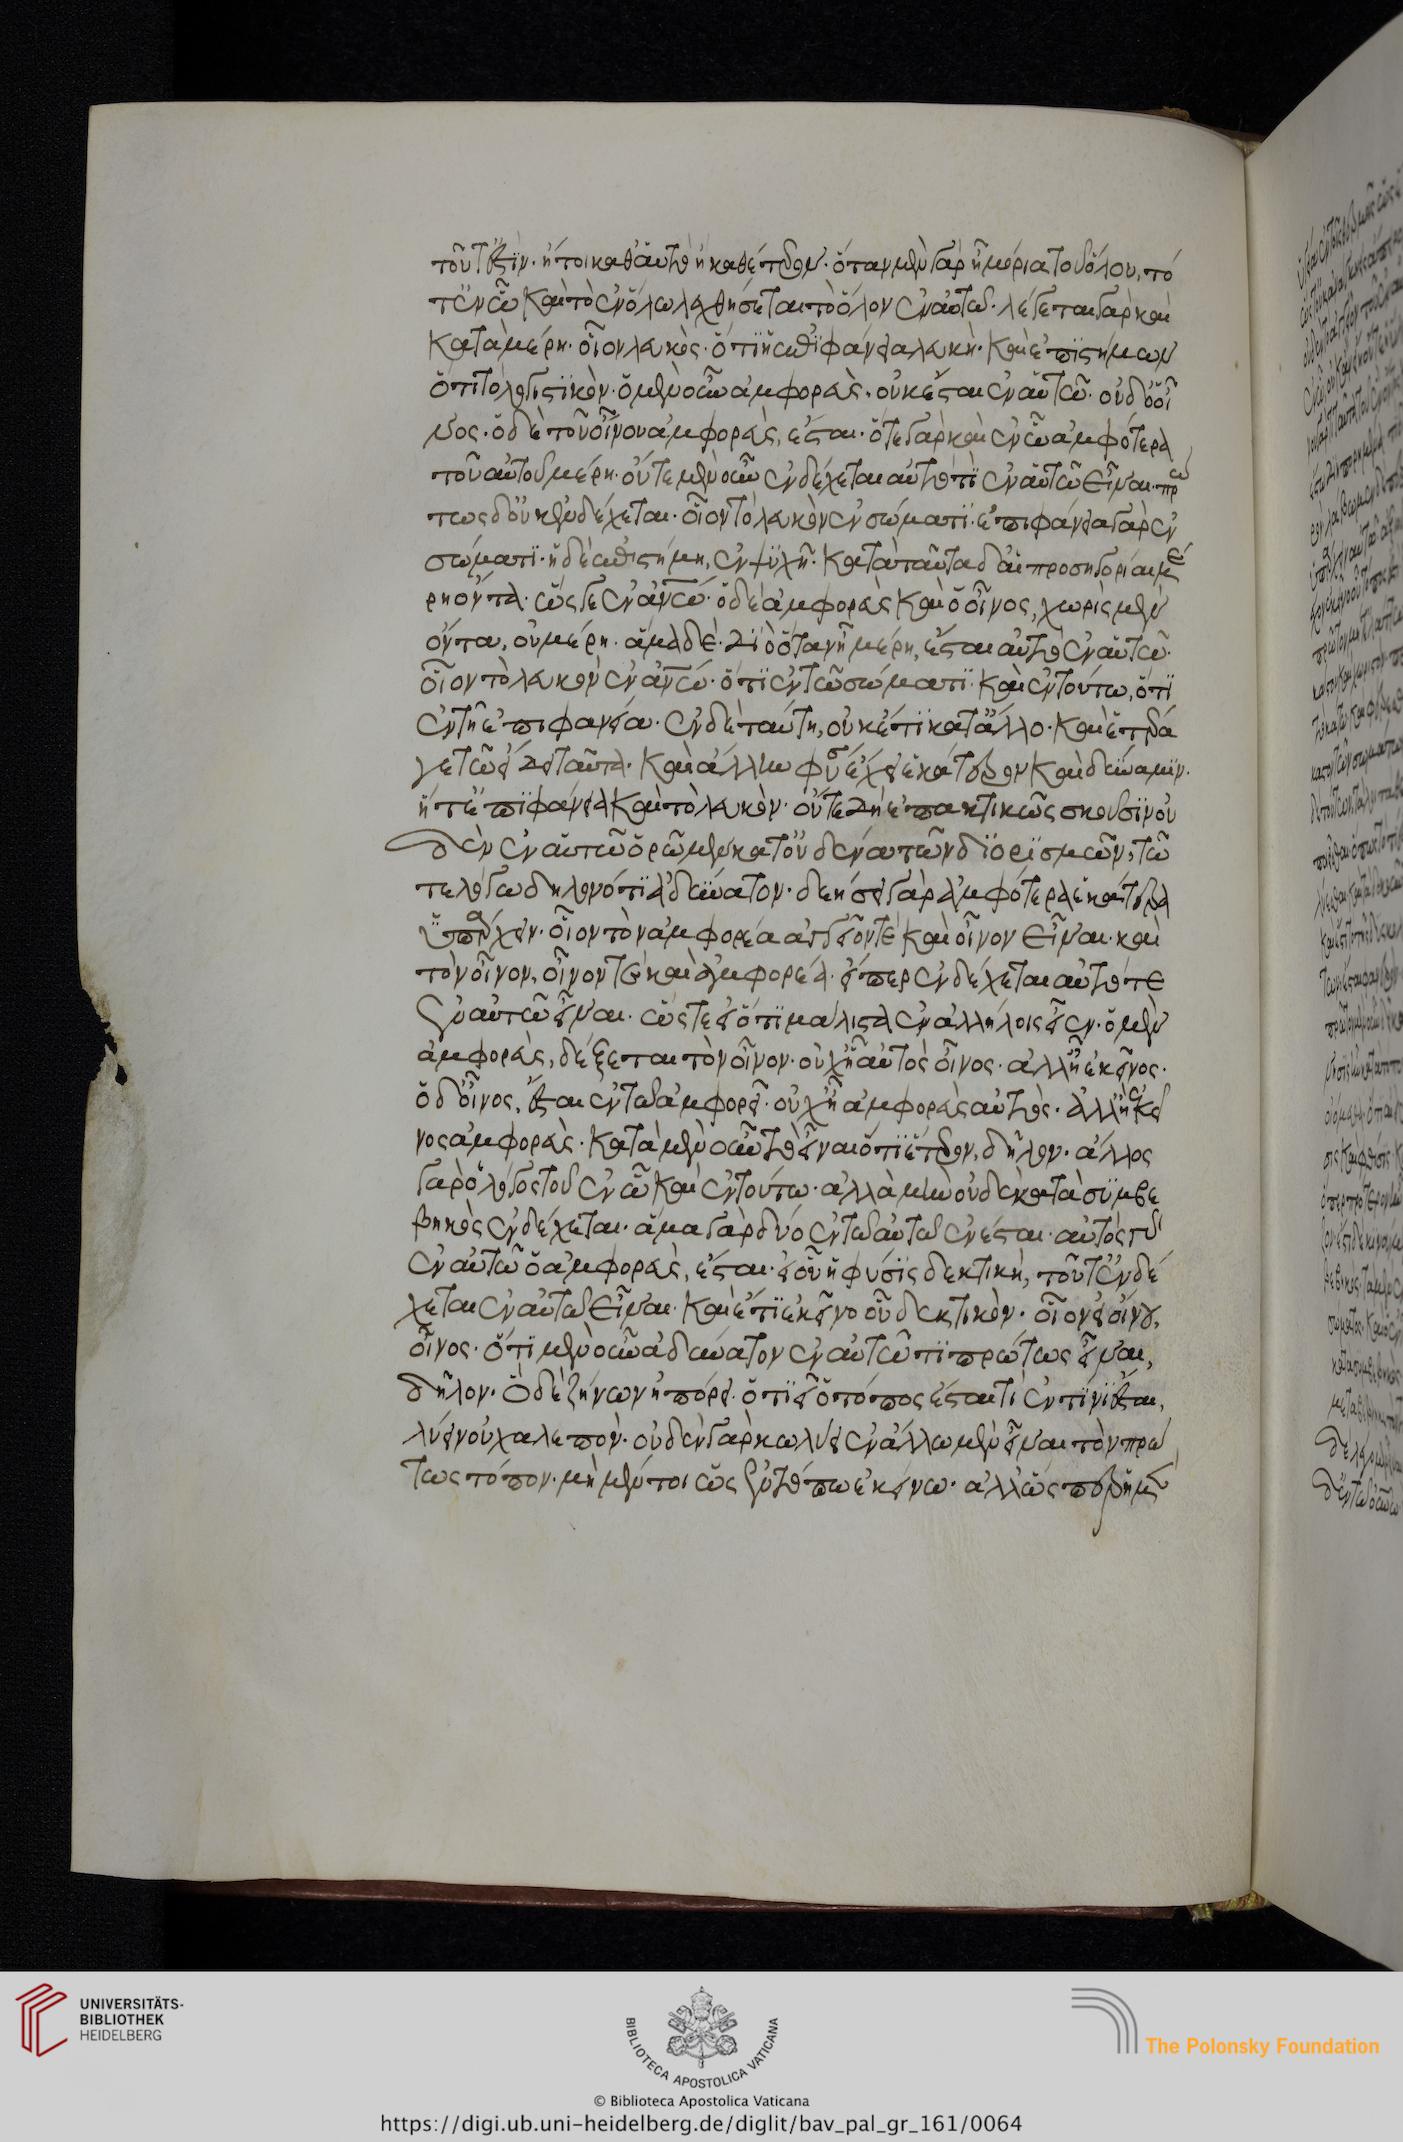 τοῦτ ἐστὶν· ἤτοι καθ' αὑτὸ ἢ καθ' ἕτερον· ὅταν μὲν γὰρ ἦ μόρια τοῦ ὅλου, τό
τ' ἐν ὧ καὶ τὸ ἐν ὅλω λεχθήσεται τὸ ὅλον ἐν αὑτῶ· λέγεται γὰρ καὶ
κατὰ μέρη· οἷον λευκὸς· ὅτι ἡ ἐπιφάνεια λευκὴ· καὶ ἐπιστήμων
ὅτι τὸ λογιστικὸν· ὁ μὲν οὖν ἀμφορεὺς, οὐκ ἔσται ἐν αὑτῶ· οὐδ' ὁ οἶ
νος· ὁ δὲ τοῦ οἴνου ἀμφορεὺς, ἔσται· ὅτε γὰρ καὶ ἐν ὧ ἀμφότερα
τοῦ αὐτοῦ μέρη· οὕτω μὲν οὖν ἐνδέχεται αὐτό τι ἐν αὑτῶ εἶναι· πρώ
τως δ' οὐκ ἐνδέχεται· οἷον τὸ λευκὸν ἐν σώματι· ἐπιφάνεια γὰρ ἐν
σώματι· ἡ δὲ ἐπιστήμη, ἐν ψυχῆ· κατὰ ταῦτα δ' αἱ προσηγορίαι μέ
ρη ὄντα· ὥς γε ἐν ἀνω· ὁ δὲ ἀμφορεὺς καὶ ὁ οἶνος, χωρὶς μὲν
ὄντα, οὐ μέρη· ἅμα δὲ· διὸ ὅταν ἦ μέρη, ἔσται αὐτὸ ἐν αὑτῶ·
οἷον τὸ λευκὸν ἐν ἀνω· ὅτι ἐν τῶ σώματι· καὶ ἐν τούτω, ὅτι
ἐν τῆ ἐπιφανεία· ἐν δὲ ταύτη, οὐκέτι κατ' ἄλλο· καὶ ἕτερά
γε τῶ εἴδει ταῦτα· καὶ ἄλλην φύσιν ἔχει ἑκάτερον καὶ δύναμιν·
ἥ τ' ἐπιφάνεια καὶ τὸ λευκὸν· οὔτε δὴ ἐπακτικῶς σκοποῦσιν οὐ
δὲν ἐν αὑτῶ ὁρῶμεν κατ' οὐδένα τῶν διορισμῶν, τῶ
τε λόγω δῆλον ὅτι ἀδύνατον· δεήσει γὰρ ἀμφότερα ἑκάτερα
ὑπάρχειν· οἷον τὸν ἀμφορέα ἀγγεῖόν τε καὶ οἶνον εἶναι· καὶ
τὸν οἶνον, οἶνον τε καὶ ἀμφορέα· εἴπερ ἐνδέχεται αὐτό τε
ἐν αὑτῶ εἶναι· ὥστε εἰ ὅτι μάλιστα ἐν ἀλλήλοις εἶεν· ὁ μὲν
ἀμφορεὺς, δέξεται τὸν οἶνον· οὐχ ἧ αὐτὸς οἶνος· ἀλλ' ἧ ἐκεῖνος·
ὁ δ' οἶνος, ἔσται ἐν τῶ ἀμφορεῖ· οὐχ ἧ ἀμφορεὺς αὐτὸς· ἀλλ' ἧ ἐκεῖ
νος ἀμφορεὺς· κατὰ μὲν οὖν τὸ εἶναι ὅτι ἕτερον, δῆλον· ἄλλος
γὰρ ὁ λόγος τοῦ ἐν ὧ καὶ ἐν τούτω· ἀλλὰ μὴν οὐδὲ κατὰ συμβε
βηκὸς ἐνδέχεται· ἅμα γὰρ δύο ἐν τῶ αὐτῶ ἐνέσται· αὐτός τε
ἐν αὑτῶ ὁ ἀμφορεὺς, ἔσται· εἰ οὗ ἡ φύσις δεκτικὴ, τοῦτ' ἐνδέ
χεται ἐν αὑτῶ εἶναι· καὶ ἔτι ἐκεῖνο οὗ δεκτικὸν· οἷον εἰ οἴνου,
οἶνος· ὅτι μὲν οὖν ἀδύνατον ἐν αὑτῶ τι πρώτως εἶναι,
δῆλον· Ὁ δὲ ζήνων ἠπόρει· ὅτι εἰ ὁ τόπος ἔσται τὶ ἐν τίνι ἔσται,
λύειν οὐ χαλεπὸν· οὐδὲν γὰρ κωλύει ἐν ἄλλω μὲν εἶναι τὸν πρώ
τως τόπον· μὴ μέντοι ὡς ἐν τόπω ἐκείνω· ἀλλ' ὥσπερ ἡ μὲν
UNIVERSITÄTS-
BIBLIOTHEK
HEIDELBERG
BIBLIOTECA APOSTOLICA VATICANA
The Polonsky Foundation
© Biblioteca Apostolica Vaticana
https://digi.ub.uni-heidelberg.de/diglit/bav_pal_gr_161/0064